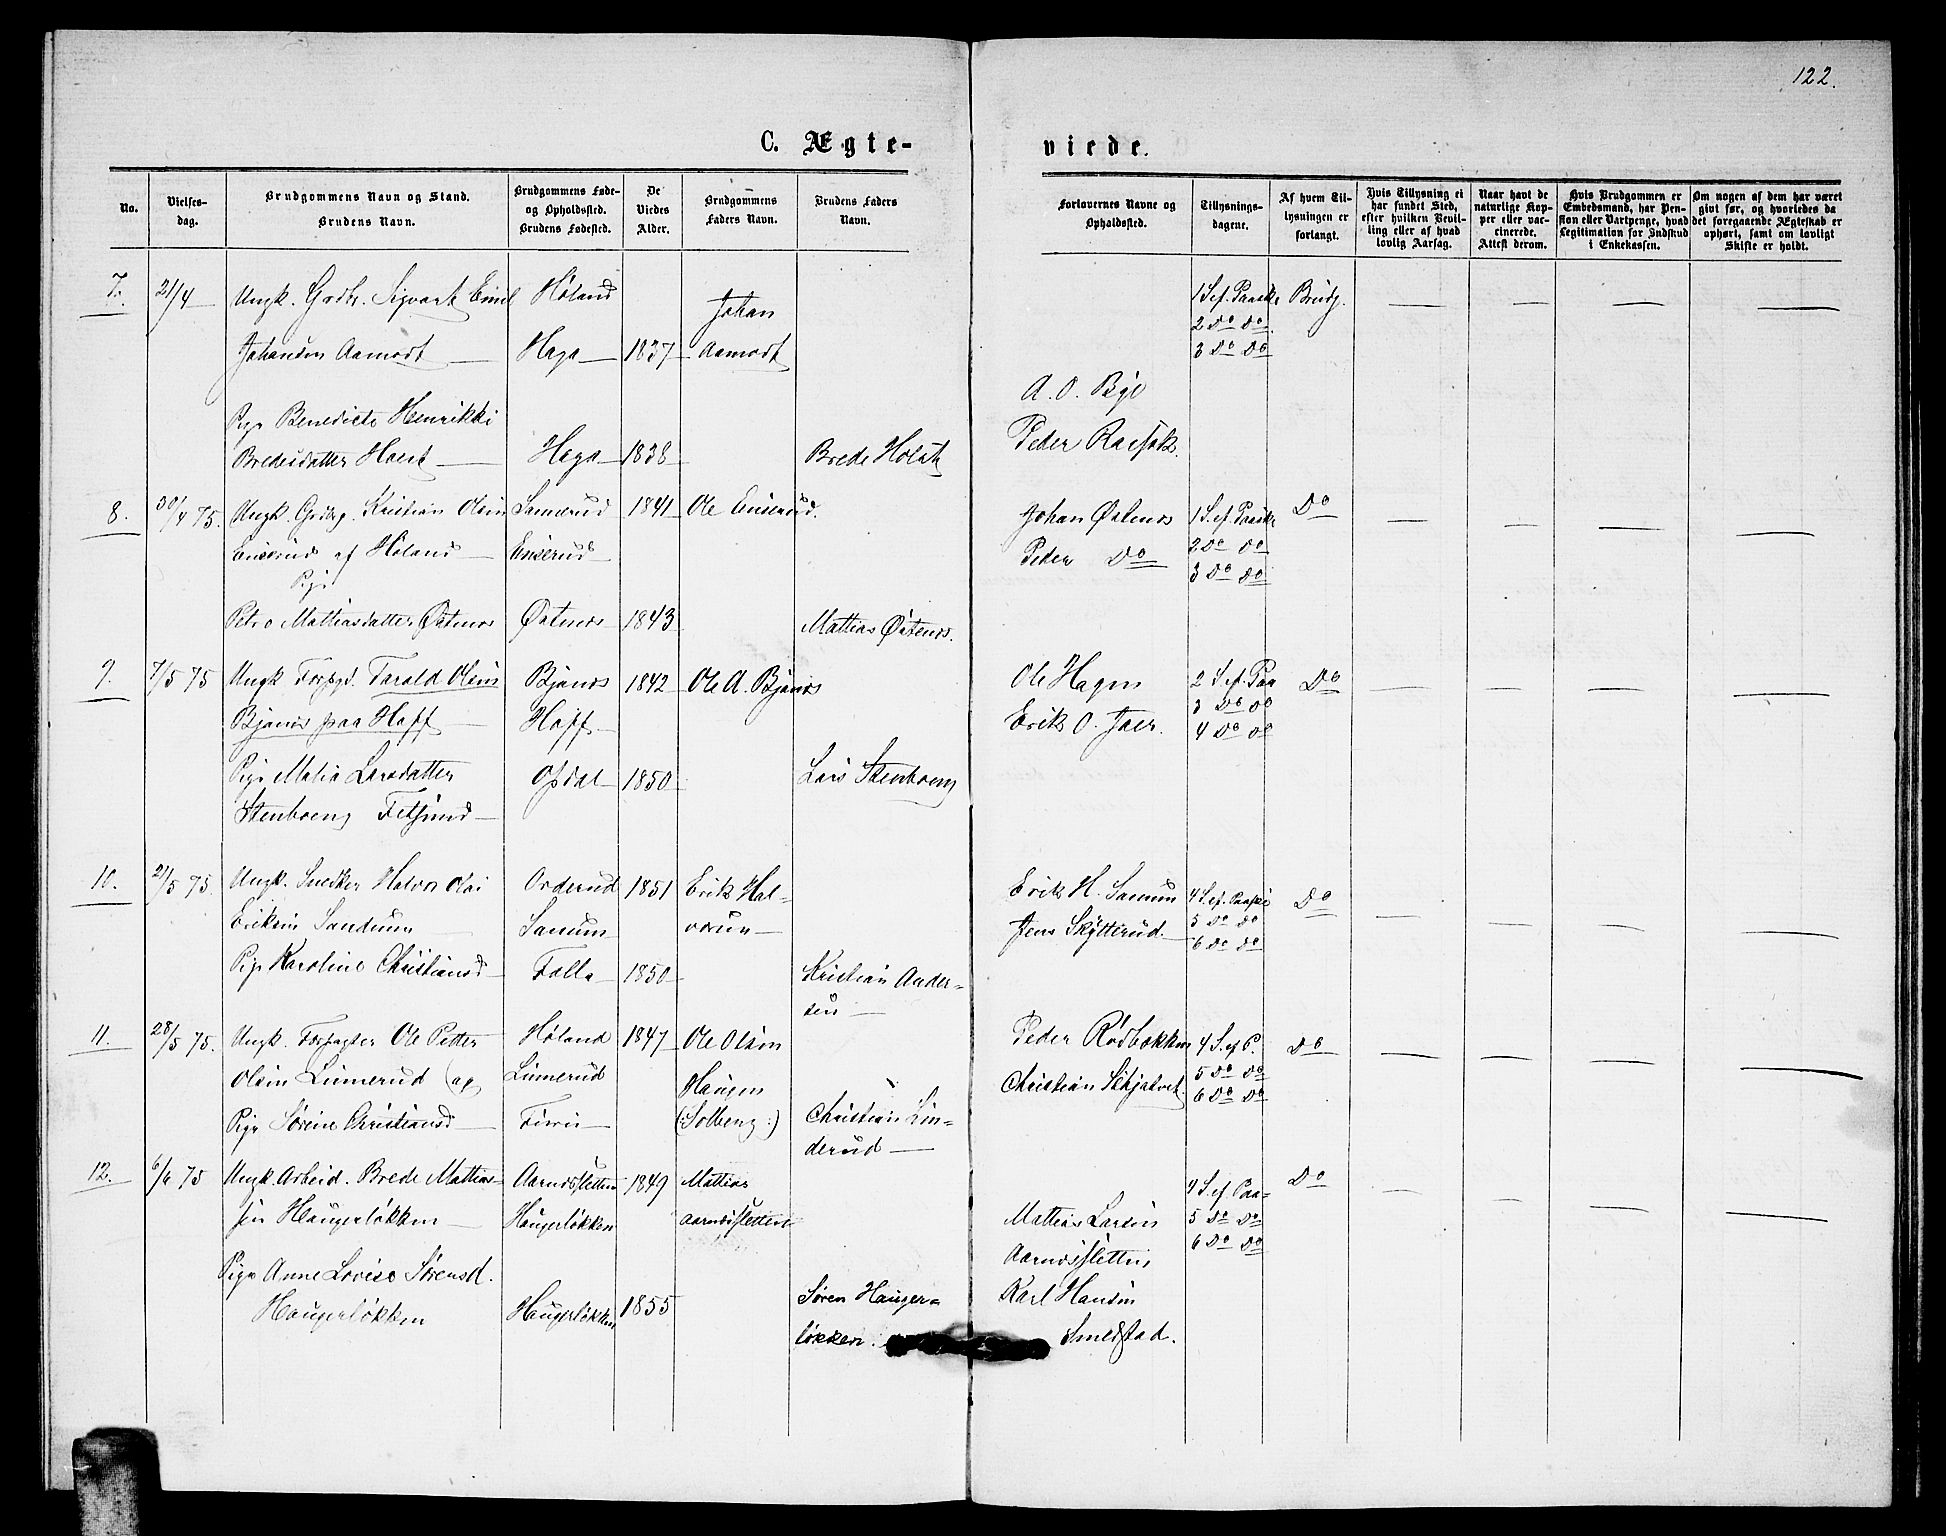 122.
C. Ægte-
viede.
No.
Vielses-
dag.
Brudgommens Navn og Stand.
Brudens Navn.
Brudgommens Føde-
og Opholdssted.
Brudens Fødested.
De
Viedes
Alder.
Brudgommens
Faders Navn.
Brudens Faders
Navn.
Forlovernes Navne og
Opholdssted.
Tillysnings-
dagene.
Af hvem Til-
lysningen er
forlangt.
Hvis Tillysning ei
har fundet Sted,
efter hvilken Bevil-
ling eller af hvad
lovlig Aarsag.
Naar havt de
naturlige Kop-
per eller vac-
cinerede.
Attest derom.
Hvis Brudgommen er
Embedsmand, har Pen-
sion eller Vartpenge, hvad
Legitimation for Indskud
i Enkekassen.
Om nogen af dem har været
givt før, og hvorledes da
det foregaaende Ægteskab er
ophørt, samt om lovligt
Skifte er holdt.
7. 21/4 Ungk. Grdbr. Sigvart Emil Høland Johan 1 S. ef. Paaske Brudg.
2 Do Do
Johansen Aamodt Haga 1837 Aamodt 3 Do Do
A. O. Bye
Pige Benedicte Henrikke
Peder
Bredesdatter Haga 1838 Brede
8. 30/4 75. Ungk. Kristian Olsen 1841 Ole Enserud. Johan Østenos 1 S. ef. Paaske Do
Enserud af Høland Enserud Peder Do 2 Do Do
Pige 3 Do Do
Mattiasdatter Østenos Østenos 1843 Mattias Østenos.
9. 7/5 75 Ungk Tarald Olsen 1842 Ole A. Ole Hagen 2 S. ef. Paa Do
3 Do Do
paa Hoff Hoff Erik O. 4 Do Do
Pige Larsdatter Opdal 1850 Lars Stenboeng
Stenboeng Fetsund
10. 21/5 75. Ungk. Snedker Halvor Olai Orderud 1851 Erik Hal- Erik H. 4 S. ef. Paaske Do
Eriksen Jens Skytterud 5 Do Do
6 Do Do
Pige Karoline Christiansd Falla 1850 Kristian Ander-
sen
11. 28/5 75. Ungk. Forpagter Ole Petter Høland 1847 Ole Olsen Peder Rødbakken 4 S. ef P. Do
Olsen Linnerud og Linnerud Haugen Christian 5 Do Do
6 Do Do
Pige Sørine Christiansd (:Solberg:) Christian Lin-
derud
12. 6/6 75 Ungk. Arbeid. Brede Mattias- Aarnæssletten 1849 Mattias 4 S. ef. Paa- Do
sen Haugerløkken Haugerløkken Aarnæssletten Mattias Larsen 5 Do Do
Aarnæssletten 6 Do Do
Pige Anne Lovise Sørensd.
Haugerløkken Haugerløkken 1855 Søren Hauger- Karl Hansen
løkken. Smedstad.